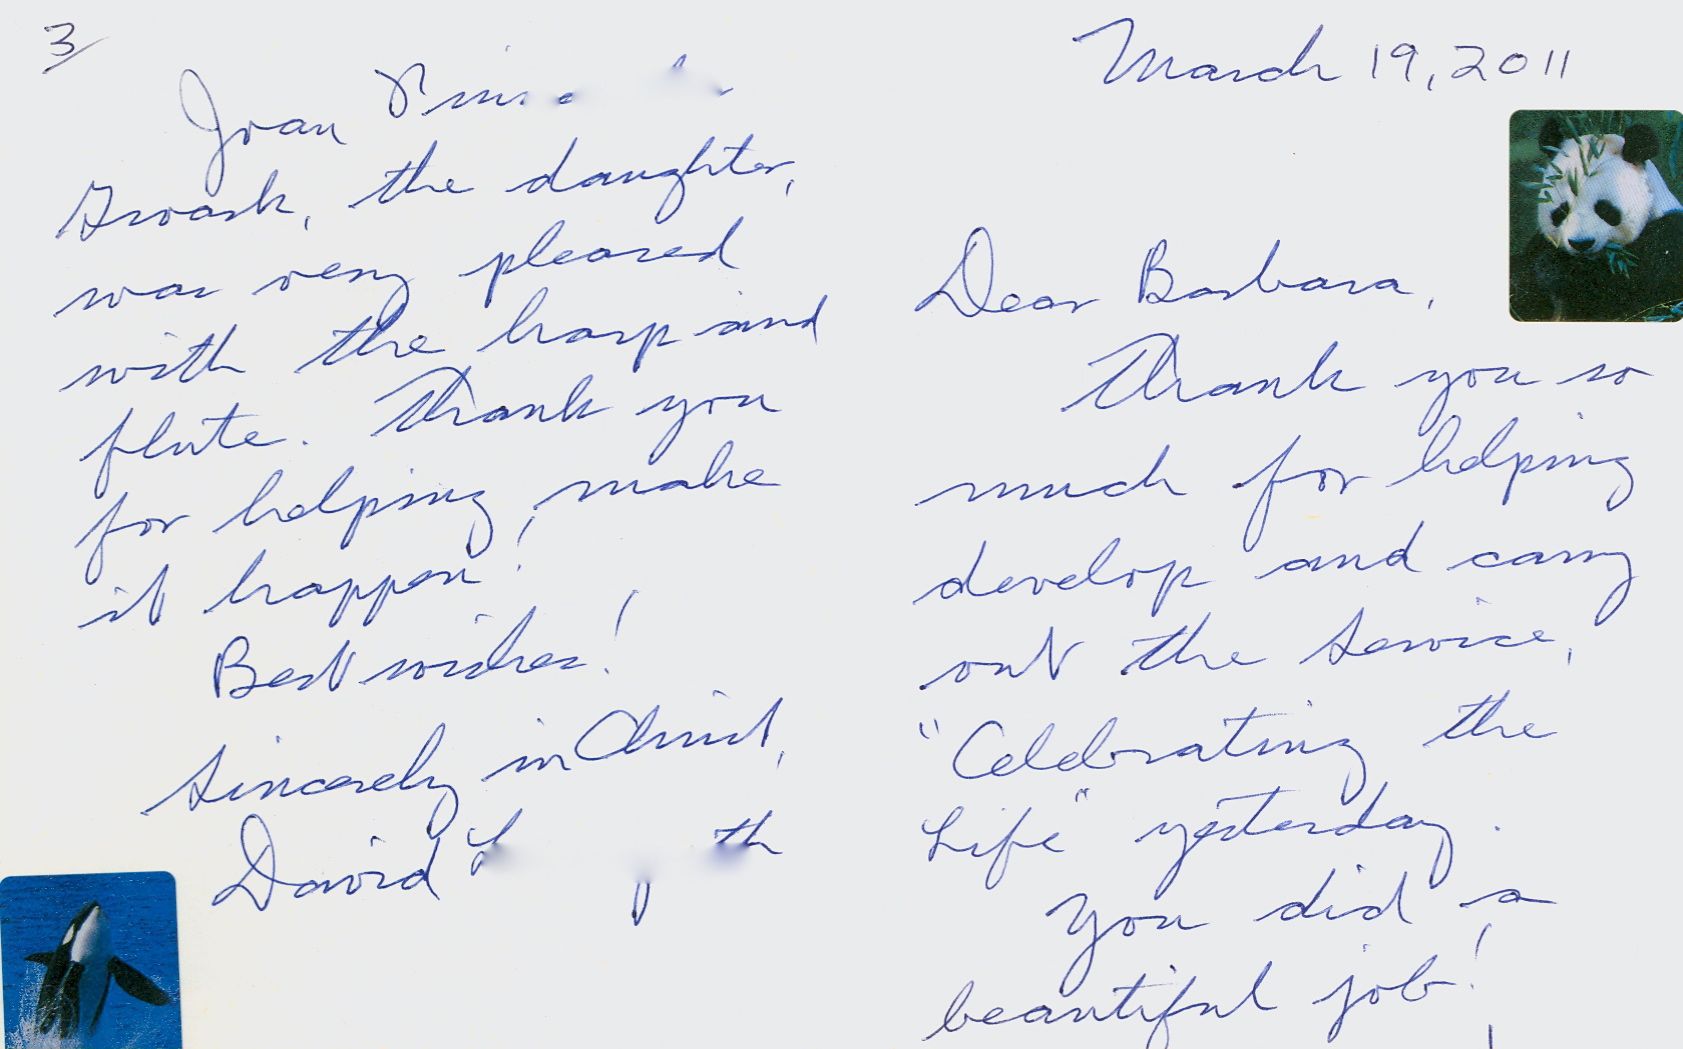 3
Joan
the daughter,
was very pleased
with the harp and
flute. Thank you
for helping make
it happen!
Best wishes!
Sincerely in Christ,
David
March 19, 2011
Dear Barbara,
Thank you so
much for helping
develop and carry
out the service,
"Celebrating the
Life" yesterday.
You did a
beautiful job!